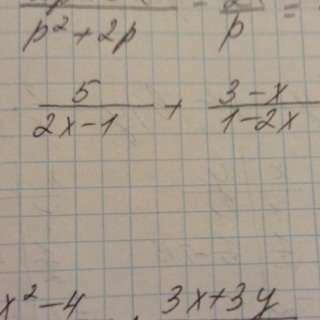 p² + 2p - p =
5/(2x-1) + (3-x)/(1-2x)
x²-4 3x+3y